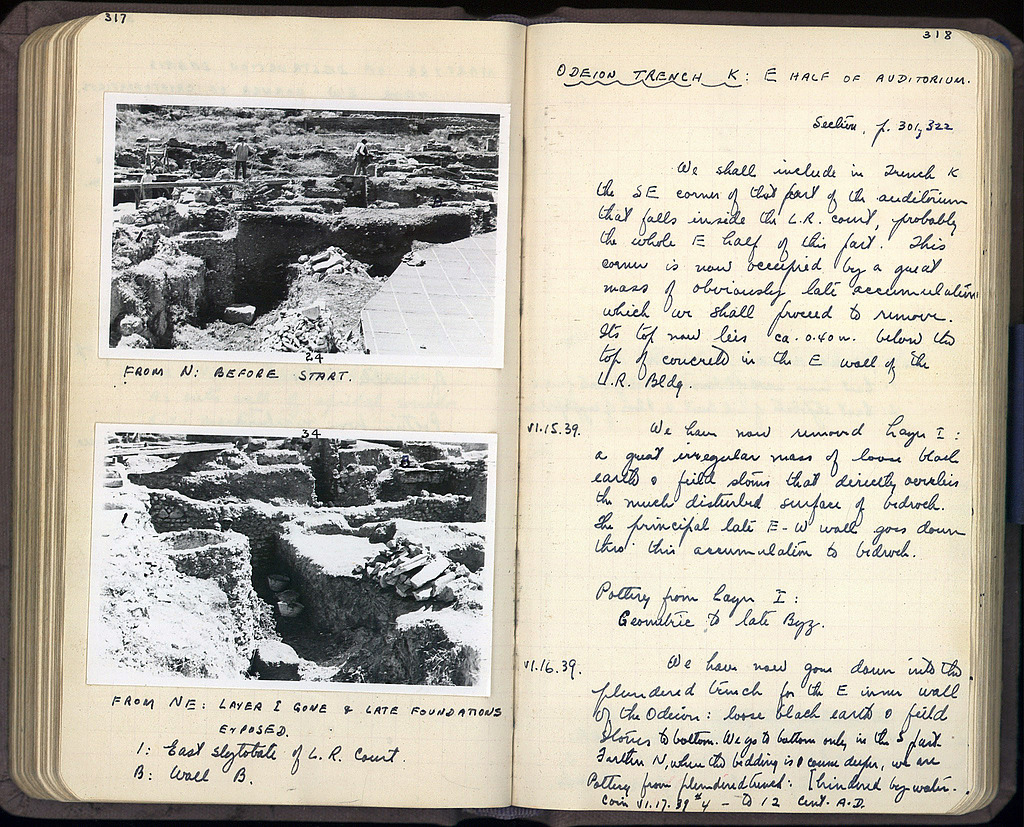 317
24
FROM N: BEFORE START.
34
1
B
FROM NE: LAYER I GONE & LATE FOUNDATIONS
EXPOSED.
1: East stylobate of L.R. Court.
B: Wall B.
318
ODEION TRENCH K: E HALF OF AUDITORIUM.
Section, p. 301, 322
We shall include in Trench K
the SE corner of that part of the auditorium
that falls inside the L.R. court, probably
the whole E half of this part. This
corner is now occupied by a great
mass of obviously late accumulation
which we shall proceed to remove.
Its top now lies ca. 0.40 m. below the
top of concrete in the E wall of the
L.R. Bldg.
VI.15.39. We have now removed Layer I:
a great irregular mass of loose black
earth & field stones that directly overlies
the much disturbed surface of bedrock.
The principal late E-W wall goes down
thro' this accumulation to bedrock.
Pottery from Layer I:
Geometric to late Byz.
VI.16.39. We have now gone down into the
plundered trench for the E inner wall
of the Odeion: loose black earth & field
stones to bottom. We go to bottom only in the S part.
Farther N, where the bedding is a course deeper, we are
Pottery from plundered trench: [hindered by water.
Coin VI.17.39 #4 — to 12 cent. A.D.